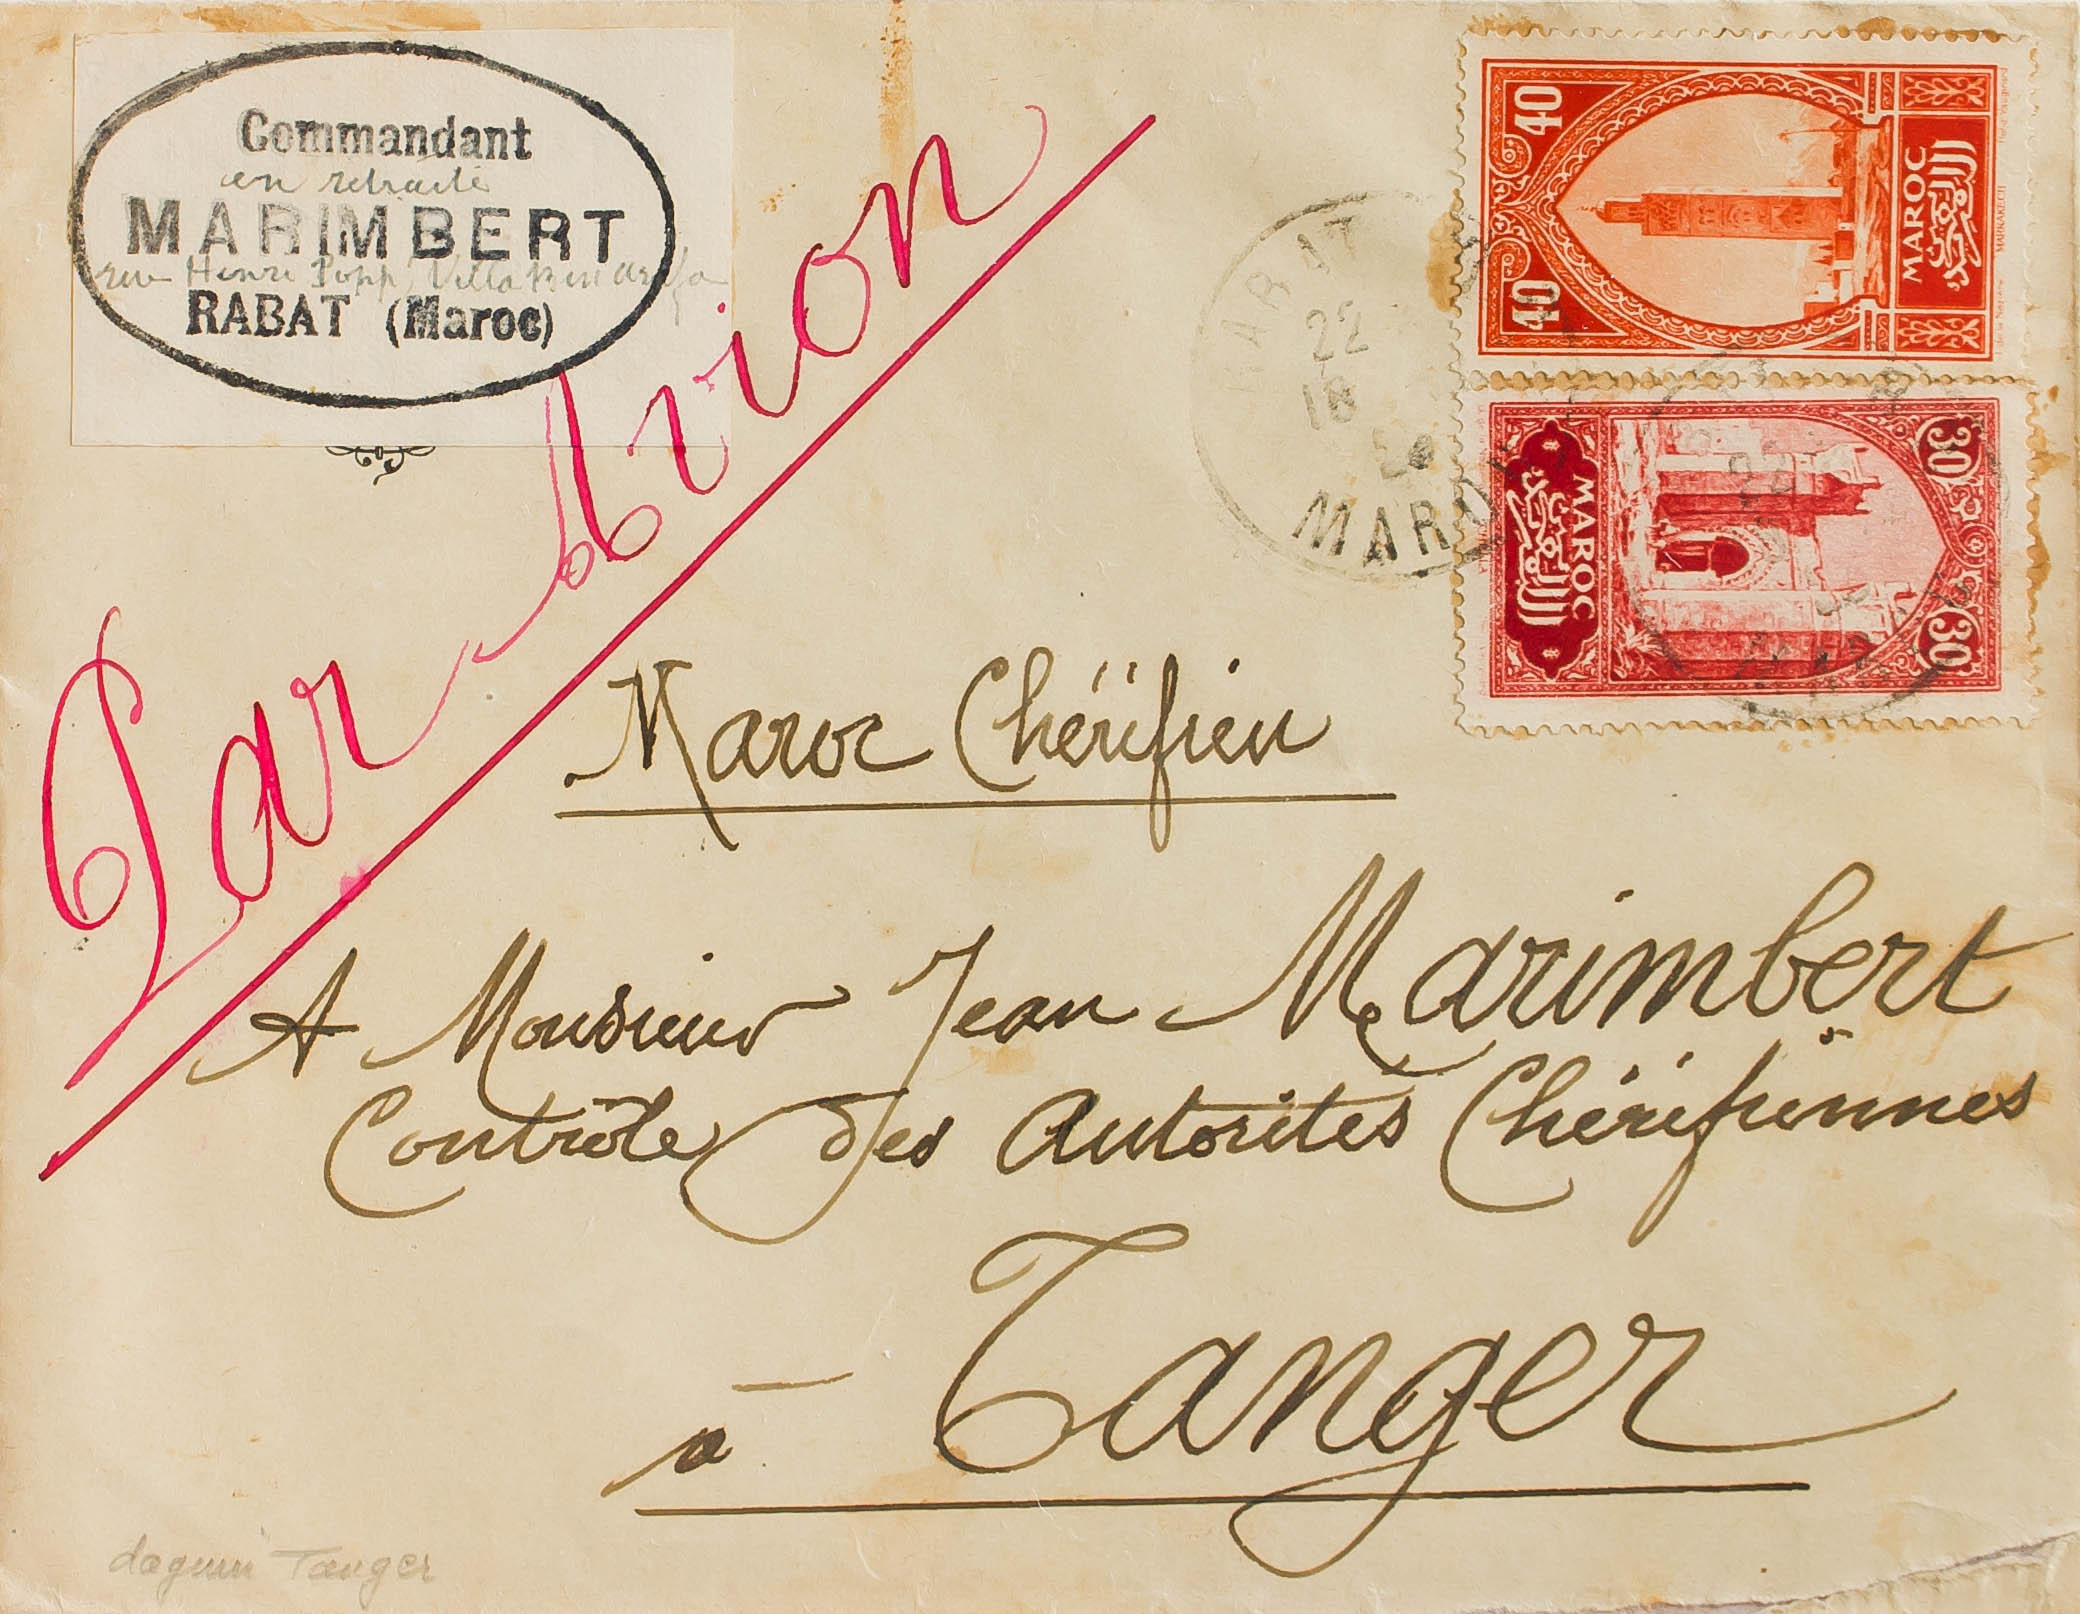 Commandant
en retraite
MARIMBERT
rue Henri Popp, Villa Ben
RABAT (Maroc)
Par Avion
40 40
MAROC
المغرب
MARRAKECH
RABAT
22
18
MAROC
30 30
MAROC
المغرب
Maroc Chérifien
A Monsieur Jean Marimbert
Contrôle des Autorités Chérifiennes
à Tanger
daguin Tanger